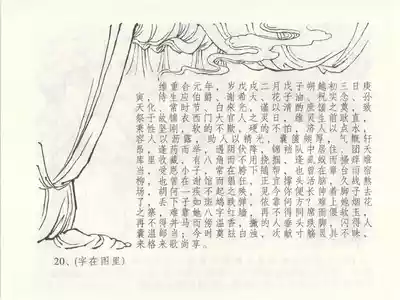 维重合元年，岁戊戌二月戊子朔越初三日庚
寅，侍生应伯爵、谢希大、花子油、祝实念、孙
天化、常时节、白来光，谨以清酌庶馐之奠，致
祭于故锦衣西门大官人之灵曰，维灵生前耿直，
秉性坚刚，软的不欺，硬的不怕，济人以点水，
容人以沥露，助人以精光，囊箧颇厚，气概轩
昂，逢药而举，遇阴伏降，锦裆队中居住，团天
库里收藏，有八角而不用挠掴，逢虱虮而搔痒难
当，受恩小子，常在胯下随帮，也曾在章台而宿
柳，也曾在谢馆而猖狂，正宜撑头活脑，久战熬
场，胡何一疾不起之殃，见今你便长伸着脚子去
了，丢下小子如斑鸠跌弹，依靠何方？难上她烟花
之寨，难靠她八字红墙，再不得同席而偎软玉，
再不得并马而傍温香，撇的人垂头跌脚，闪得人
囊温郎当；今时奠兹白浊，次献寸觞，灵其不昧，
来格来歌尚享。
20、(字在图里)